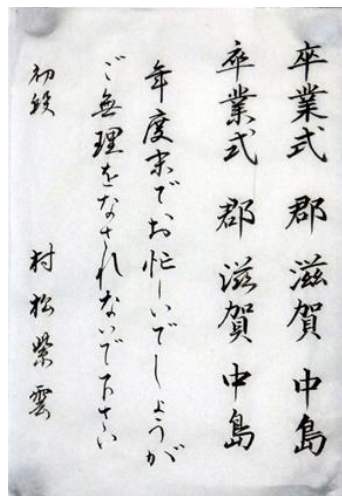 卒業式 郡 滋賀 中島
卒業式 郡 滋賀 中島
年度末でお忙しいでしょうが
ご無理をなされないで下さい
初段 村松紫雲